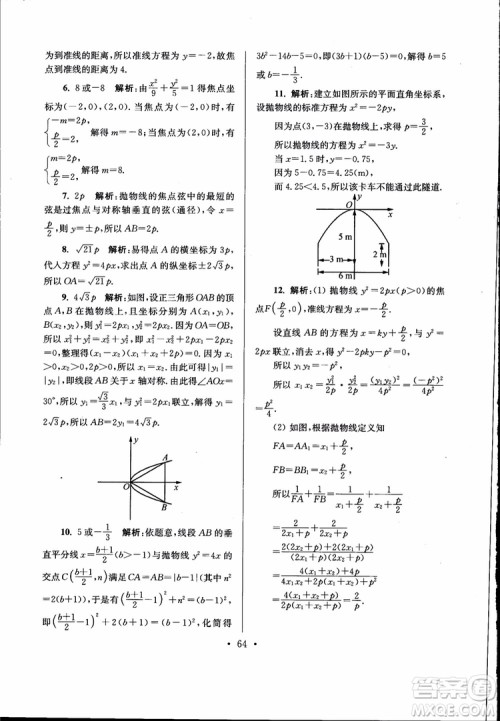 为到准线的距离,所以准线方程为 x=-2,故焦
点到准线的距离为 4.
6. 8或-8 解析:由x²/9+y²/5=1可求得焦
点坐标为(-2,0),(2,0).当焦点为(-2,0)时,
{m=-2p, p/2=2, 解得 m=-8;当焦点为(2,0)时,
{m=2p, p/2=2, 解得 m=8.
7. 2p 解析:抛物线的焦点弦中的最短的
弦是过焦点与对称轴垂直的弦(通径),令 x=
p/2,则 y=±p,所以 AB=2p.
8. √21p 解析:易得点 A 的横坐标为3/2p,
代人方程 y²=2px,求出点 A 的纵坐标为√3p,
所以 OA=√21/2p.
9. 4√3p 解析:设正三角形 OAB 的顶
点 A,B 在抛物线上,且坐标分别为 A(x₁,y₁),
B(x₂,y₂),则 y₁²=2px₁,y₂²=2px₂.又 OA=
OB,整理得(x₁-x₂)(x₁+x₂+2p)=0.因为
x₁>0,x₂>0,2p>0,所以 x₁=x₂,|y₁|=|y₂|,
即线段 AB 关于 x 轴对称.由此得∠AOx=
30°,所以 y₁=√3/3x₁,与 y₁²=2px₁联立,解得 y₁=
2√3p.所以 AB=2y₁=4√3p.
y
A
O
x
B
10. 5或-1/3 解析:依题意,线段 AB 的垂
直平分线 x=(b+1)/2(b>-1)与抛物线 y²=x 的
交点 C((b+1)/2,n)满足 CA=AB=|b-1|(其中
n²=(b+1)/2),所以((b+1)/2-1)²+n²=(b-
1)²,即((b+1)/2-1)²+(b+1)/2=(b-1)²,化简得
3b²-14b-5=0,即(3b+1)(b-5)=0,解得 b=5
或 b=-1/3.
11. 解析:建立如图所示的平面直角坐标系,
设抛物线的标准方程为 x²=-2py(p>0).
因为点(3,-3)在抛物线上,所以 p=3/2,
所以抛物线的方程为 x²=-3y.
当 x=1.5 时,y=-0.75,
因为 5-0.75=4.25(m),
而 4.25<4.5,所以该卡车不能通过此隧道.
y
O
x
5 m
2 m
3 m
6 m
12. 解析:(1) 抛物线 y²=2px(p>0)的焦
点F(p/2,0),准线方程为 x=-p/2.
设直线 AB 的方程为 x=ky+p/2,与 y²=
2px 联立,消去 x,得 y²-2pky-p²=0,
所以 y₁y₂=-p²,
所以 x₁x₂=y₁²/2p · y₂²/2p=(y₁y₂)²/4p²=(-p²)²/4p²=
p²/4.
(2) 如图,根据抛物线定义知
FA=AA₁=x₁+p/2,
FB=BB₁=x₂+p/2,
所以1/FA+1/FB=1/(x₁+p/2)+1/(x₂+p/2)
=2/(2x₁+p)+2/(2x₂+p)
=2(2x₂+p)+2(2x₁+p)/(2x₁+p)(2x₂+p)
=4(x₁+x₂)+4p/4x₁x₂+2p(x₁+x₂)+p²
=4(x₁+x₂+p)/2p(x₁+x₂+p)=2/p.
· 64 ·